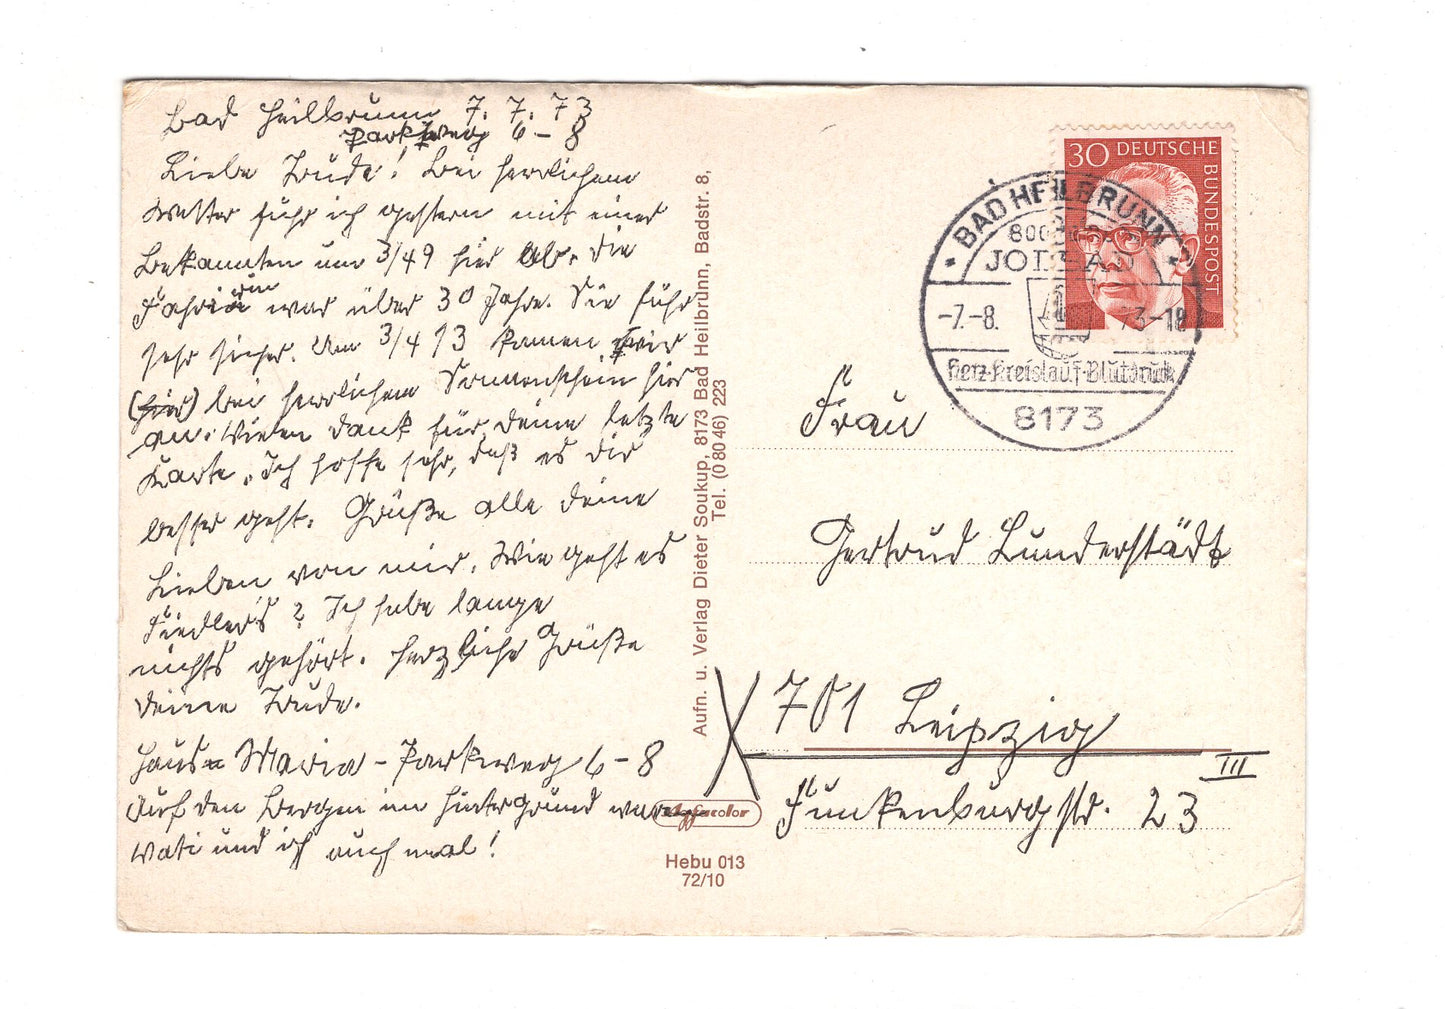 Bad Heilbrunn 7. 7. 73
Parkweg 6-8
Liebe Trude! Bei herrlichem
Wetter fuhr ich gestern mit einer
Bekannten um 3/4 9 hier ab. Die
Fahrerin war über 30 Jahre. Sie fuhr
sehr sicher. Um 3/4 13 kamen wir
(hier) bei herrlichem Sonnenschein hier
an. Vielen Dank für Deine letzte
Karte. Ich hoffe sehr, daß es Dir
besser geht. Grüße alle Deine
Lieben von mir. Wie geht es
Fiedler's? Ich habe lange
nichts gehört. Herzliche Grüße
Deine Trude.
Haus Maria - Parkweg 6-8
Auf den Bergen im Hintergrund war
Vati und ich auch mal!
Aufn. u. Verlag Dieter Soukup, 8173 Bad Heilbrunn, Badstr. 8,
Tel. (0 80 46) 223
Agfacolor
Hebu 013
72/10
30 DEUTSCHE
BUNDESPOST
BAD HEILBRUNN
800
JODBAD
-7.-8. 73-18
Herz-Kreislauf-Blutdruck
8173
Frau
Gertrud Lunderstädt
701 Leipzig
III
Funkenburgstr. 23